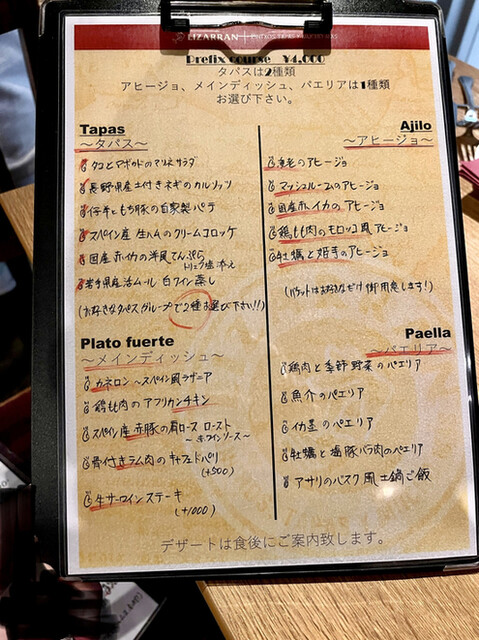 LIZARRAN
Prefix course ¥4,000
タパスは2種類
アヒージョ、メインディッシュ、パエリアは1種類
お選び下さい。
Tapas
～タパス～
タコとアボカドのマリネサラダ
長野県産土付きネギのカルソッツ
仔牛ともち豚の自家製パテ
スペイン産 生ハムのクリームコロッケ
国産 赤イカの洋風天ぷら
トリュフ塩 添え
岩手県産活ムール 白ワイン蒸し
(お好きなタパスグループで2種お選び下さい!!)
Ajilo
～アヒージョ～
海老のアヒージョ
マッシュルームのアヒージョ
国産赤イカのアヒージョ
鶏もも肉のモロッコ風アヒージョ
牡蠣と姫竹のアヒージョ
(バケットはお好きなだけ御用意します!)
Plato fuerte
～メインディッシュ～
カネロン ～スペイン風ラザニア
鶏もも肉のアフリカンチキン
スペイン産 赤豚の肩ロース ロースト
～赤ワインソース～
骨付きラム肉のキャフェドパリ
(+500)
牛サーロインステーキ
(+1000)
Paella
～パエリア～
鶏肉と季節野菜のパエリア
魚介のパエリア
イカ墨のパエリア
牡蠣と塩豚バラ肉のパエリア
アサリのバスク風土鍋ご飯
デザートは食後にご案内致します。